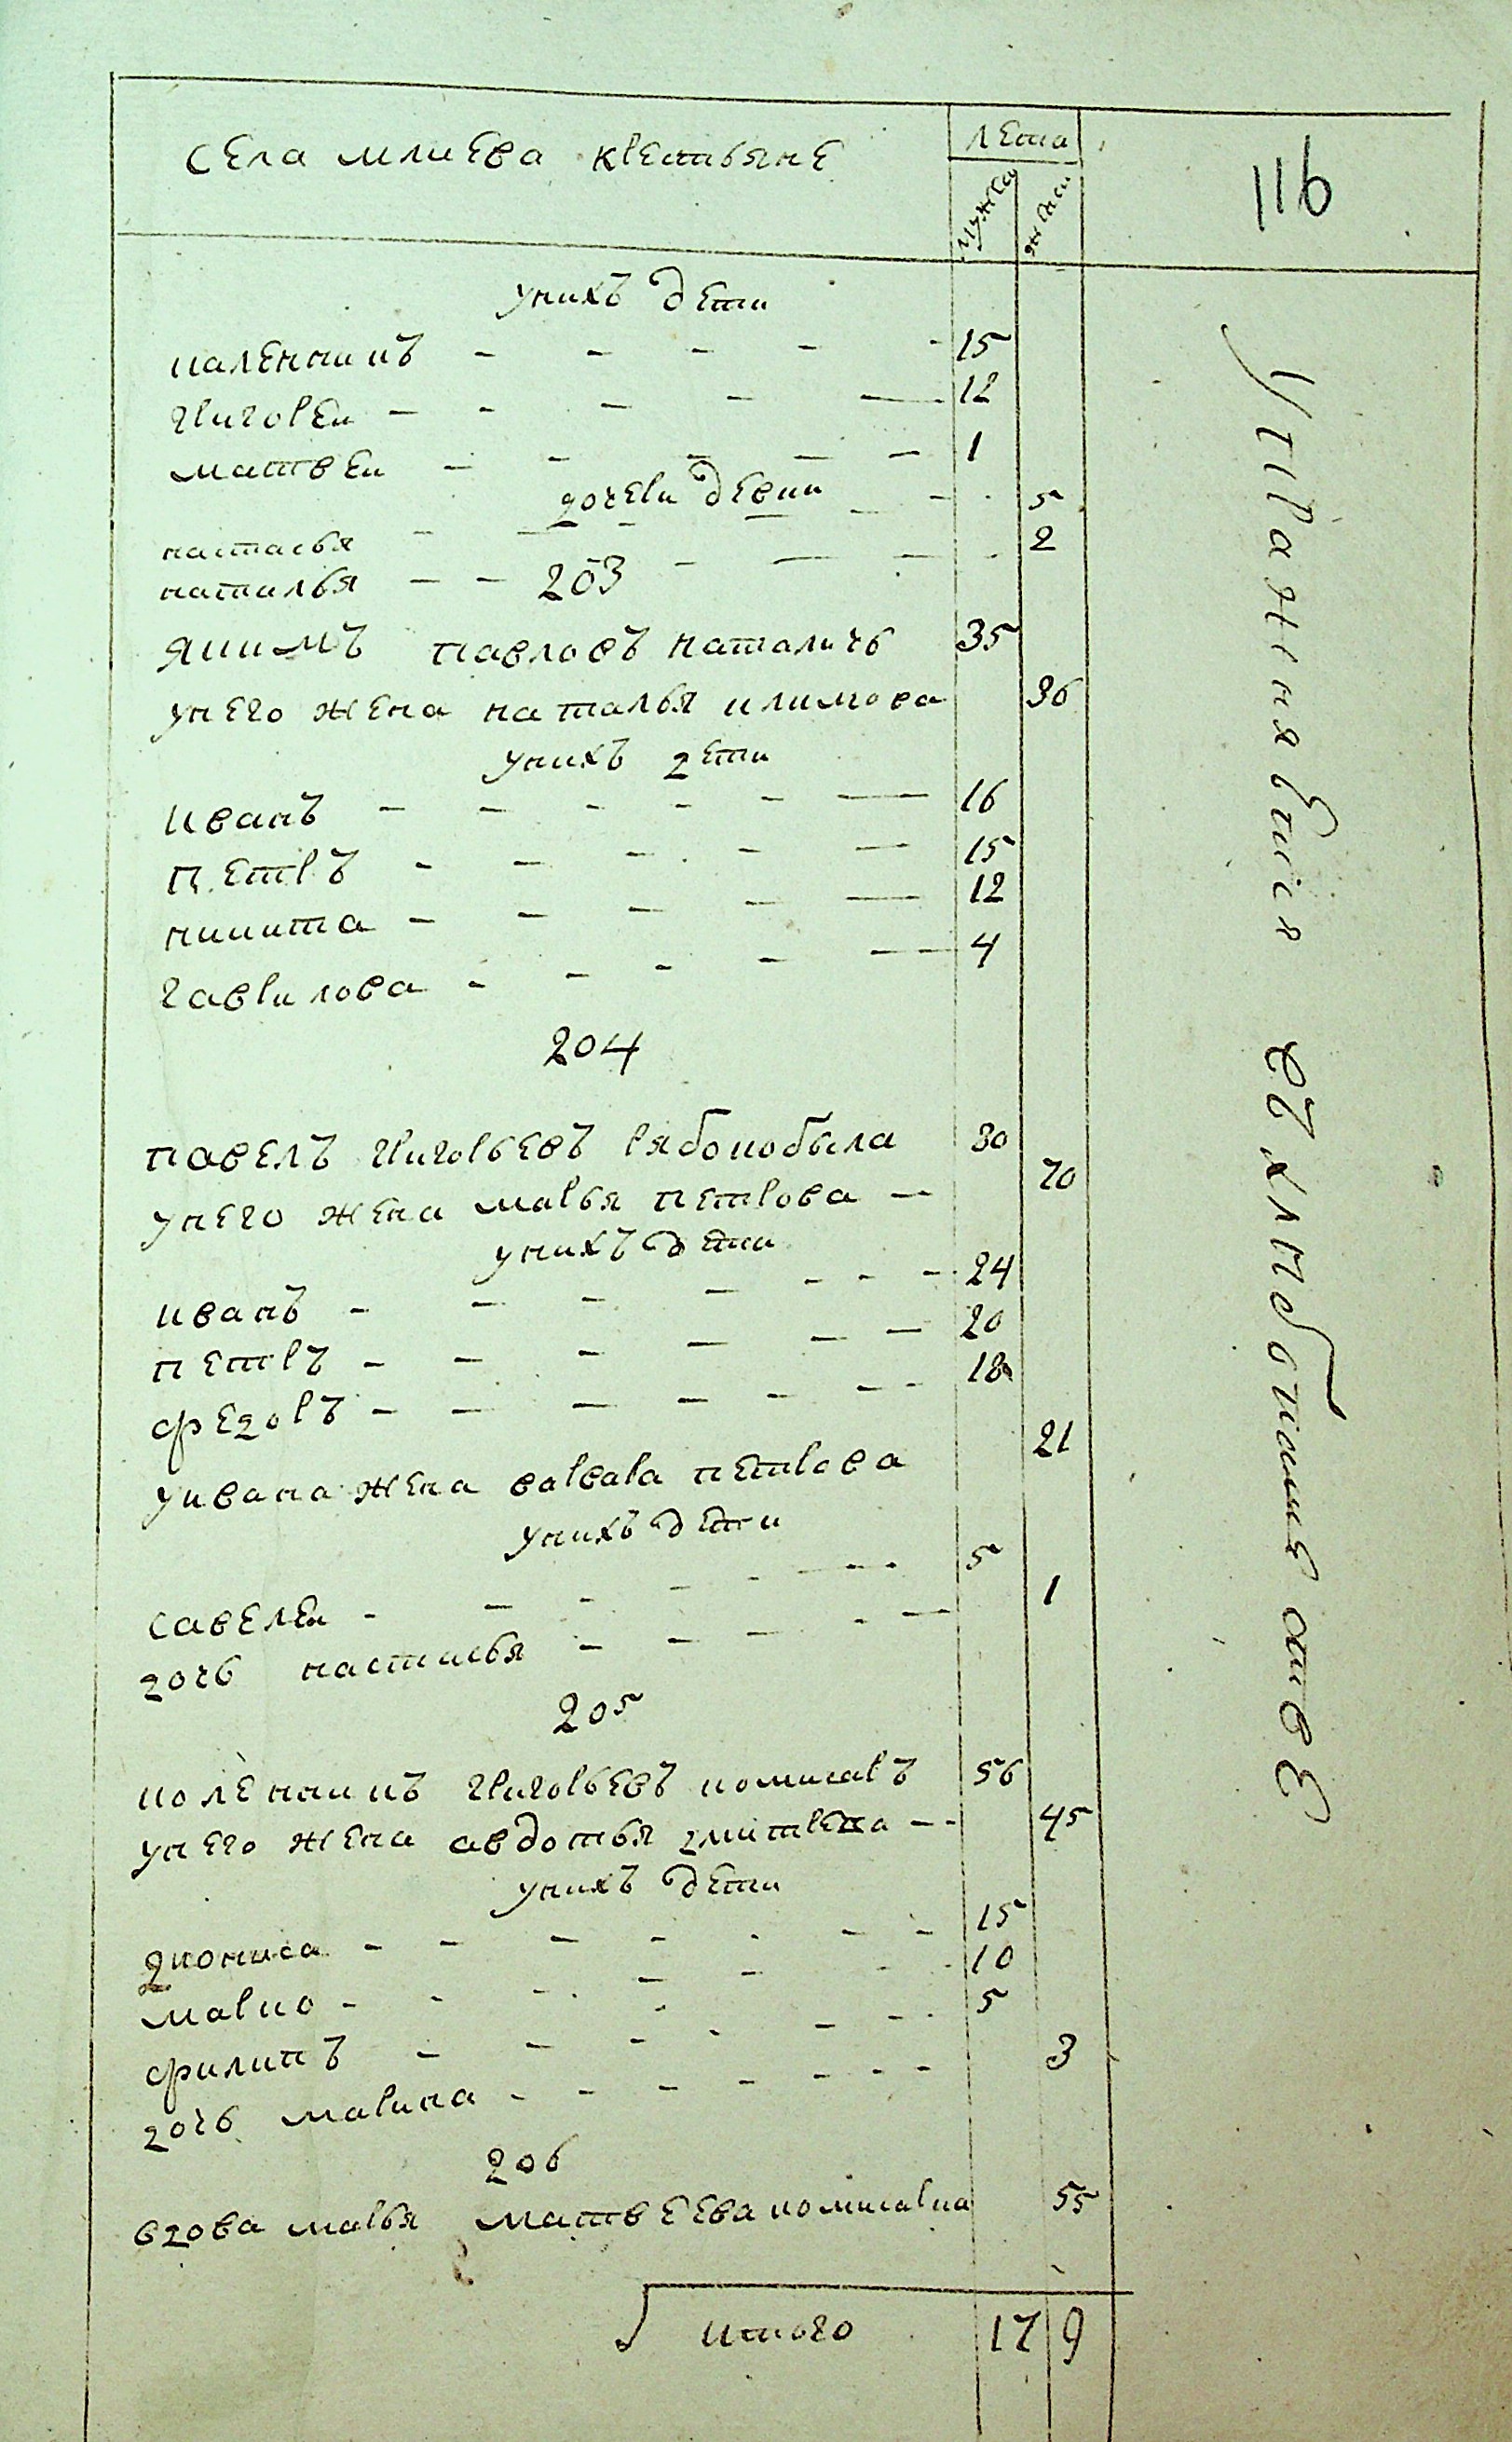 села млиева крестьяне
лета
мужеска
женска
116
у нихъ дети
каленникъ 15
григореи 12
матвеи 1
дочери девки
настасья 5
наталья 2
203
якимъ павловъ наталичь 35
у него жена наталья климова 36
у нихъ дети
иванъ 16
петръ 15
никита 12
гаврилова 4
204
павелъ григорьевъ рябокобыла 30
у него жена марья петрова 70
у нихъ дети
иванъ 24
петръ 20
федоръ 18
у ивана жена варвара петрова 21
у нихъ дети
савелеи 5
дочь настасья 1
205
коленникъ григорьевъ комисаръ 56
у него жена авдотья дмитрева 45
у нихъ дети
диониса 15
марко 10
филипъ 5
дочь марина 3
206
вдова марья матвеева комисарка 55
итого 17 9